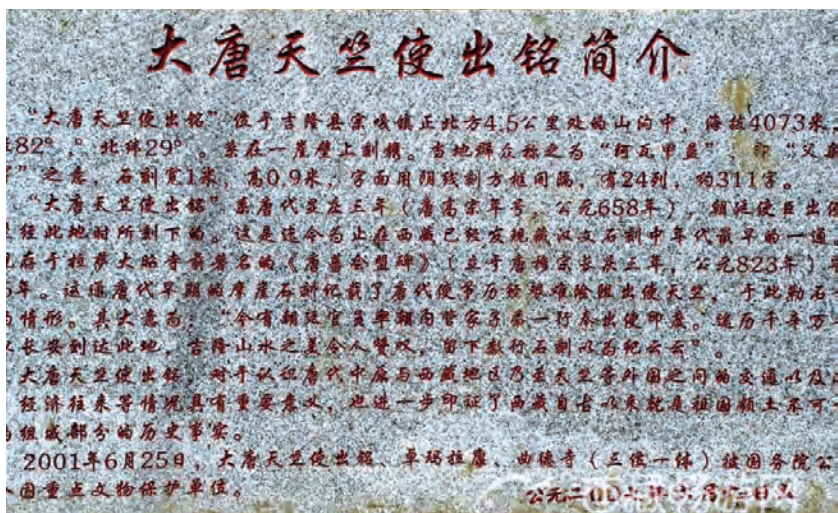 大唐天竺使出铭简介
“大唐天竺使出铭”位于吉隆县宗嘎镇正北方4.5公里处的山沟中，海拔4073米，
82°，北纬29°。系在一崖壁上刻镌。当地群众称之为“阿瓦甲益”，即“父
”之意，石刻宽1米，高0.9米，字面用阴线刻方框间隔，有24列，约311字。
“大唐天竺使出铭”系唐代显庆三年（唐高宗年号 公元658年），朝廷使臣出
经此地时所刻下的。这是迄今为止在西藏已经发现藏汉文石刻中年代最早的一通
存于拉萨大昭寺前著名的《唐蕃会盟碑》（立于唐穆宗长庆三年，公元823年）
年。这通唐代早期的摩崖石刻记载了唐代使节历经艰难险阻出使天竺，于此勒石
情形。其大意为：“今有朝廷官员率翱向皆家子弟一行奉出使印度。遍历千年万
长安到达此地，吉隆山水之美令人赞叹，留下数行石刻以为纪云云”。
大唐天竺使出铭，对于认识唐代中原与西藏地区乃至天竺等外国之间的交通以及
经济往来等情况具有重要意义，也进一步印证了西藏自古以来就是祖国领土不可
组成部分的历史事实。
2001年6月25日，大唐天竺使出铭、卓玛拉康、曲德寺（三位一体）被国务院公
国重点文物保护单位。
公元二〇〇七年